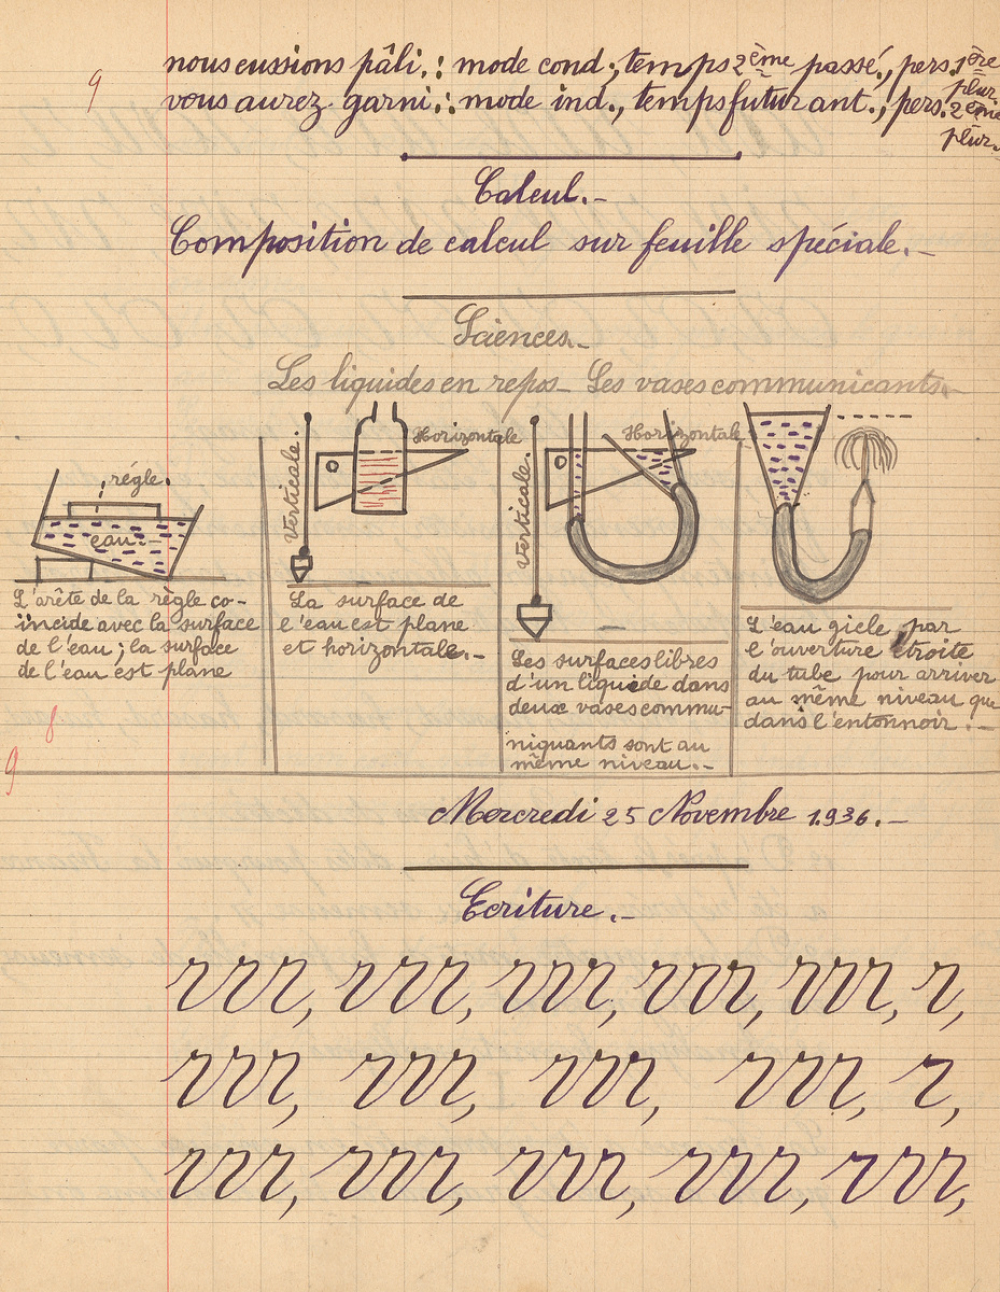 9
nous eussions pâli.: mode cond., temps 2ème passé., pers. 1ère plur.
vous aurez garni.: mode ind., temps futur ant., pers. 2ème plur.
Calcul.-
Composition de calcul sur feuille spéciale.-
Sciences.-
Les liquides en repos - Les vases communicants.-
règle.
eau.-
L'arête de la règle co-
ïncide avec la surface
de l'eau ; la surface
de l'eau est plane
Verticale.
Horizontale
La surface de
l'eau est plane
et horizontale.-
Verticale.
Horizontale
Les surfaces libres
d'un liquide dans
deux vases commu-
niquants sont au
même niveau.-
L'eau gicle par
l'ouverture étroite
du tube pour arriver
au même niveau que
dans l'entonnoir.-
8
9
Mercredi 25 Novembre 1936.-
Ecriture.-
rrr, rrr, rrr, rrr, rrr, r,
rrr, rrr, rrr, rrr, r,
rrr, rrr, rrr, rrr, rrr,